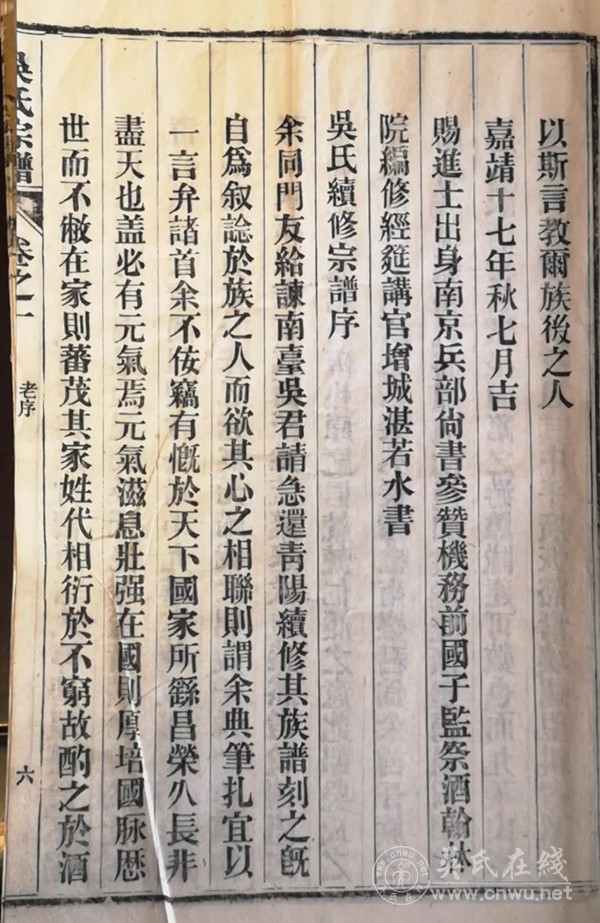 以斯言教爾族後之人
嘉靖十七年秋七月吉
賜進士出身南京兵部尙書參贊機務前國子監祭酒翰林
院編修經筵講官增城湛若水書
吳氏續修宗譜序
余同門友給諫南臺吳君請急還靑陽續修其族譜刻之旣
自爲叙諗於族之人而欲其心之相聯則謂余典筆扎宜以
一言弁諸首余不侫竊有慨於天下國家所繇昌榮久長非
盡天也盖必有元氣焉元氣滋息壯强在國則厚培國脉歴
世而不敝在家則蕃茂其家姓代相衍於不窮故酌之於酒
吳氏宗譜
卷之一
老序
六
吴氏在线
www.cnwu.net